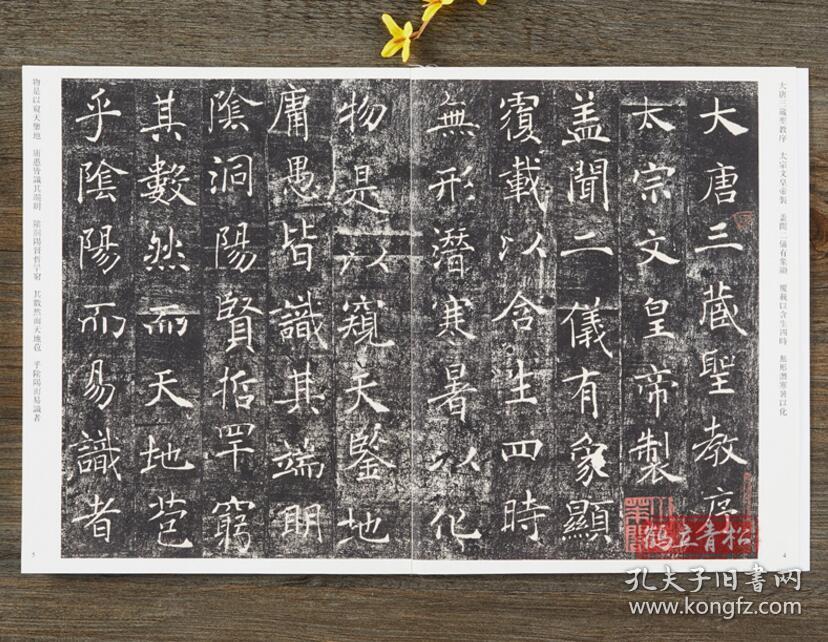 大唐三藏聖教序 太宗文皇帝製 蓋聞二儀有象顯 覆載以含生四時 無形潛寒暑以化
4
大唐三藏聖教序
太宗文皇帝製
盖聞二儀有象顯
覆載以含生四時
無形潛寒暑以化
物是以窺天鑒地
庸愚皆識其端明
陰洞陽賢哲罕窮
其數然而天地苞
乎陰陽而易識者
物是以窺天鑒地 庸愚皆識其端明 陰洞陽賢哲罕窮 其數然而天地苞 乎陰陽而易識者
5
鶴立青松
孔夫子旧书网
www.kongfz.com